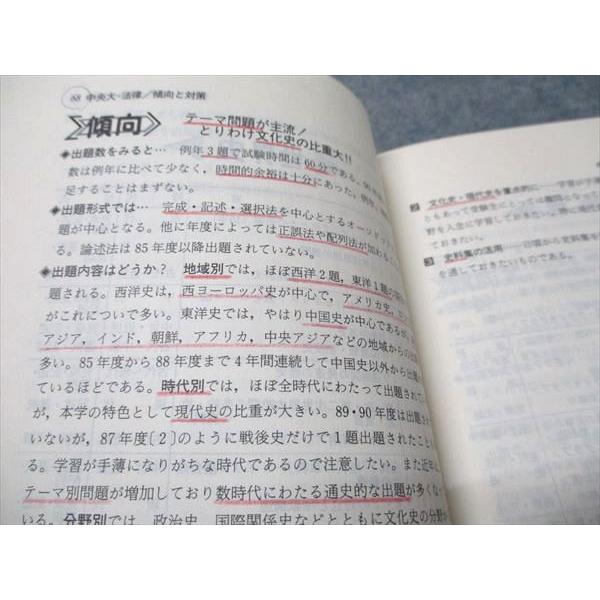 68 中央大-法律／傾向と対策
傾向
テーマ問題が主流！
とりわけ文化史の比重大!!
◆出題数をみると… 例年3題で試験時間は60分である。90年
数は例年に比べて少なく，時間的余裕は十分にあった。例年，
足することはまずない。
◆出題形式では… 完成・記述・選択法を中心とするオーソドックス
題が中心となる。他に年度によっては正誤法や配列法が加わる
る。論述法は85年度以降出題されていない。
◆出題内容はどうか？ 地域別では，ほぼ西洋2題，東洋1題の
題される。西洋史は，西ヨーロッパ史が中心で，アメリカ史，
がこれについで多い。東洋史では，やはり中国史が中心であるが，
アジア，インド，朝鮮，アフリカ，中央アジアなどの地域からの出
多い。85年度から88年度まで4年間連続して中国史以外から出
ているほどである。時代別では，ほぼ全時代にわたって出題されて
が，本学の特色として現代史の比重が大きい。89・90年度は出題
いないが，87年度〔2〕のように戦後史だけで1題出題されたこと
る。学習が手薄になりがちな時代であるので注意したい。また近年
テーマ別問題が増加しており数時代にわたる通史的な出題が多くな
いる。分野別では，政治史，国際関係史などとともに文化史の分野
② 文化史・現代史を重点的に──学習が手薄
ともあって受験生にとっては難問となって
野を入念に学習しておきたい。特に現代
おきたい。
③ 史料集の活用──日頃から史料集
を通しておきたいものである。